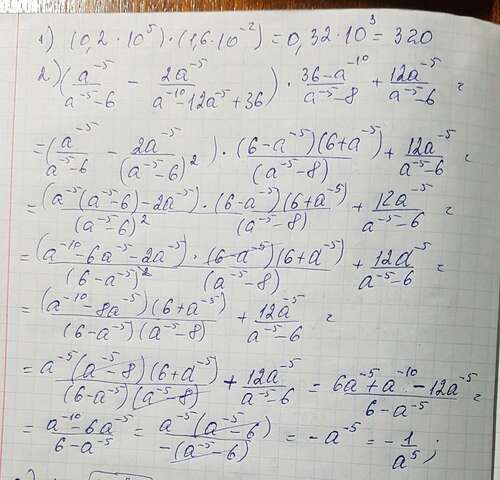 1) (0,2 · 10⁵) · (1,6 · 10⁻²) = 0,32 · 10³ = 320
2) (a⁻⁵/(a⁻⁵-6) - 2a⁻⁵/(a⁻¹⁰-12a⁻⁵+36)) · (36-a⁻¹⁰)/(a⁻⁵-8) + 12a⁻⁵/(a⁻⁵-6) =
= (a⁻⁵/(a⁻⁵-6) - 2a⁻⁵/(a⁻⁵-6)²) · (6-a⁻⁵)(6+a⁻⁵)/(a⁻⁵-8) + 12a⁻⁵/(a⁻⁵-6) =
= (a⁻⁵(a⁻⁵-6)-2a⁻⁵)/(a⁻⁵-6)² · (6-a⁻⁵)(6+a⁻⁵)/(a⁻⁵-8) + 12a⁻⁵/(a⁻⁵-6) =
= (a⁻¹⁰-6a⁻⁵-2a⁻⁵)/(6-a⁻⁵)² · (6-a⁻⁵)(6+a⁻⁵)/(a⁻⁵-8) + 12a⁻⁵/(a⁻⁵-6) =
= (a⁻¹⁰-8a⁻⁵)(6+a⁻⁵)/((6-a⁻⁵)(a⁻⁵-8)) + 12a⁻⁵/(a⁻⁵-6) =
= a⁻⁵(a⁻⁵-8)(6+a⁻⁵)/((6-a⁻⁵)(a⁻⁵-8)) + 12a⁻⁵/(a⁻⁵-6) = (6a⁻⁵+a⁻¹⁰-12a⁻⁵)/(6-a⁻⁵) =
= (a⁻¹⁰-6a⁻⁵)/(6-a⁻⁵) = a⁻⁵(a⁻⁵-6)/(-(a⁻⁵-6)) = -a⁻⁵ = -1/a⁵;